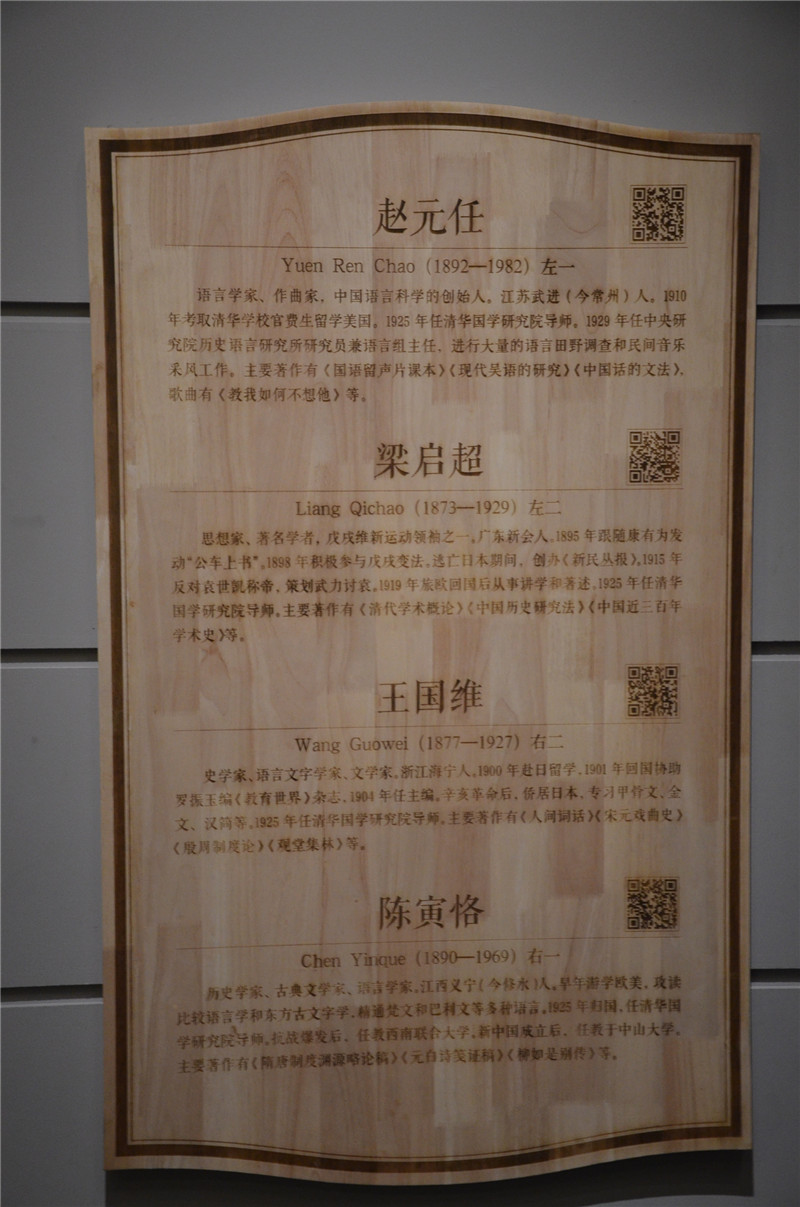 赵元任
Yuen Ren Chao (1892—1982) 左一
语言学家、作曲家，中国语言科学的创始人。江苏武进（今常州）人。1910
年考取清华学校官费生留学美国。1925 年任清华国学研究院导师。1929 年任中央研
究院历史语言研究所研究员兼语言组主任，进行大量的语言田野调查和民间音乐
采风工作。主要著作有《国语留声片课本》《现代吴语的研究》《中国话的文法》，
歌曲有《教我如何不想他》等。
梁启超
Liang Qichao (1873—1929) 左二
思想家、著名学者，戊戌维新运动领袖之一。广东新会人。1895 年跟随康有为发
动“公车上书”。1898 年积极参与戊戌变法。逃亡日本期间，创办《新民丛报》。1915 年
反对袁世凯称帝，策划武力讨袁。1919 年旅欧回国后从事讲学和著述。1925 年任清华
国学研究院导师。主要著作有《清代学术概论》《中国历史研究法》《中国近三百年
学术史》等。
王国维
Wang Guowei (1877—1927) 右二
史学家、语言文字学家、文学家。浙江海宁人。1900 年赴日留学。1901 年回国协助
罗振玉编《教育世界》杂志，1904 年任主编。辛亥革命后，侨居日本，专习甲骨文、金
文、汉简等。1925 年任清华国学研究院导师。主要著作有《人间词话》《宋元戏曲史》
《殷周制度论》《观堂集林》等。
陈寅恪
Chen Yinque (1890—1969) 右一
历史学家、古典文学家、语言学家。江西义宁（今修水）人。早年游学欧美，攻读
比较语言学和东方古文字学，精通梵文和巴利文等多种语言。1925 年归国，任清华国
学研究院导师。抗战爆发后，任教西南联合大学。新中国成立后，任教于中山大学。
主要著作有《隋唐制度渊源略论稿》《元白诗笺证稿》《柳如是别传》等。